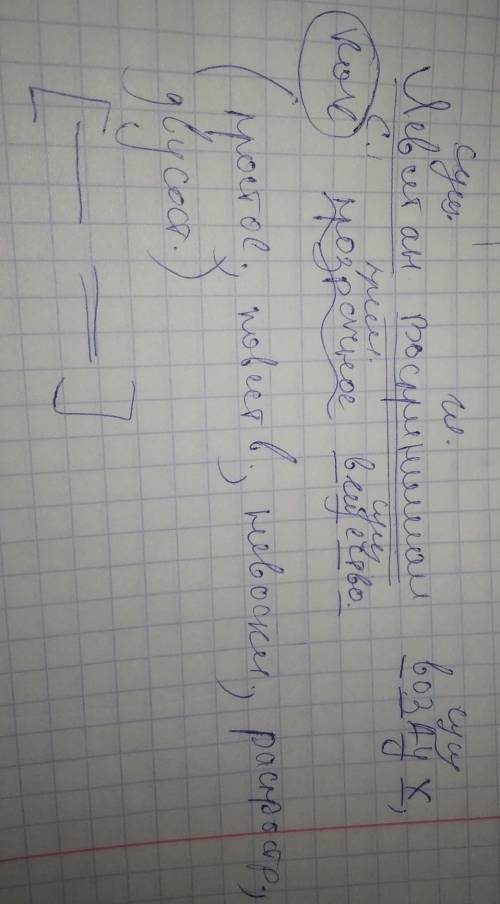 сущ. гл. сущ
Левитан воспринимал воздух,
С. прил. сущ
как прозрачное вещество.
(простое, повеств., невоскл, распростр.,
двусост.)
[— =]